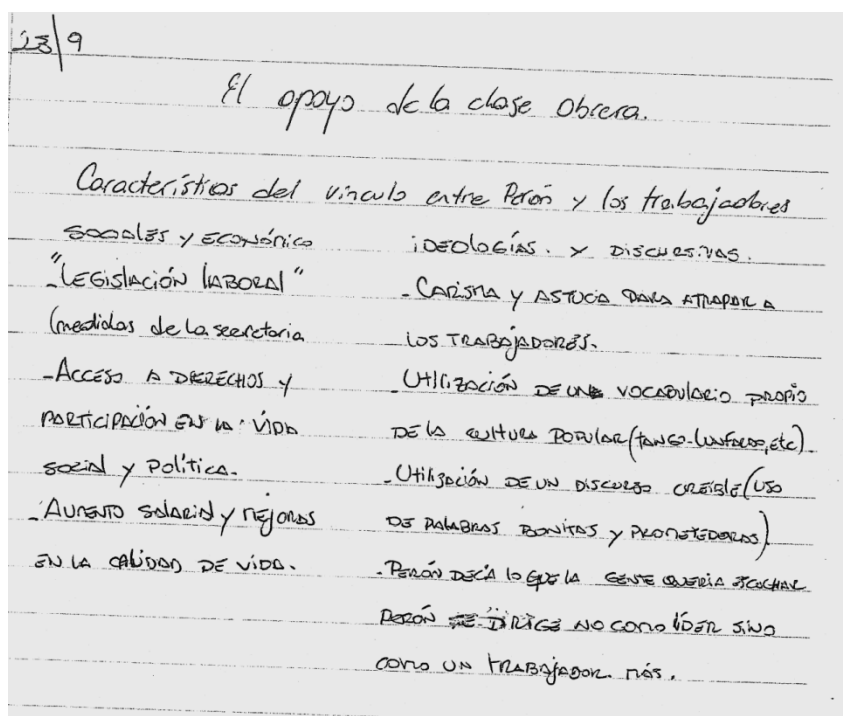 23/9
El apoyo de la clase obrera.
Características del vínculo entre Perón y los trabajadores
sociales y económico
"LEGISLACIÓN LABORAL"
(medidas de la secretaria
-ACCESO A DERECHOS Y
PARTICIPACIÓN EN LA VIDA
social y Política.
-AUMENTO SALARIAL y MEJORAS
EN LA CALIDAD DE VIDA.
iDEOLOGÍAS. Y DISCURSIVAS.
-CARISMA Y ASTUCIA PARA ATRAPAR A
LOS TRABAJADORES.
-Utilización DE UN VOCABULARIO PROPIO
DE LA CULTURA POPULAR (TANGO-LUNFARDO, etc).
-Utilización DE UN DISCURSO CREÍBLE (USO
DE PALABRAS BONITAS Y PROMETEDORAS)
-PERÓN DECÍA lo QUE LA GENTE QUERÍA ESCUCHAR
PERÓN SE DIRIGE NO COMO LÍDER SINO
COMO UN TRABAJADOR MÁS.